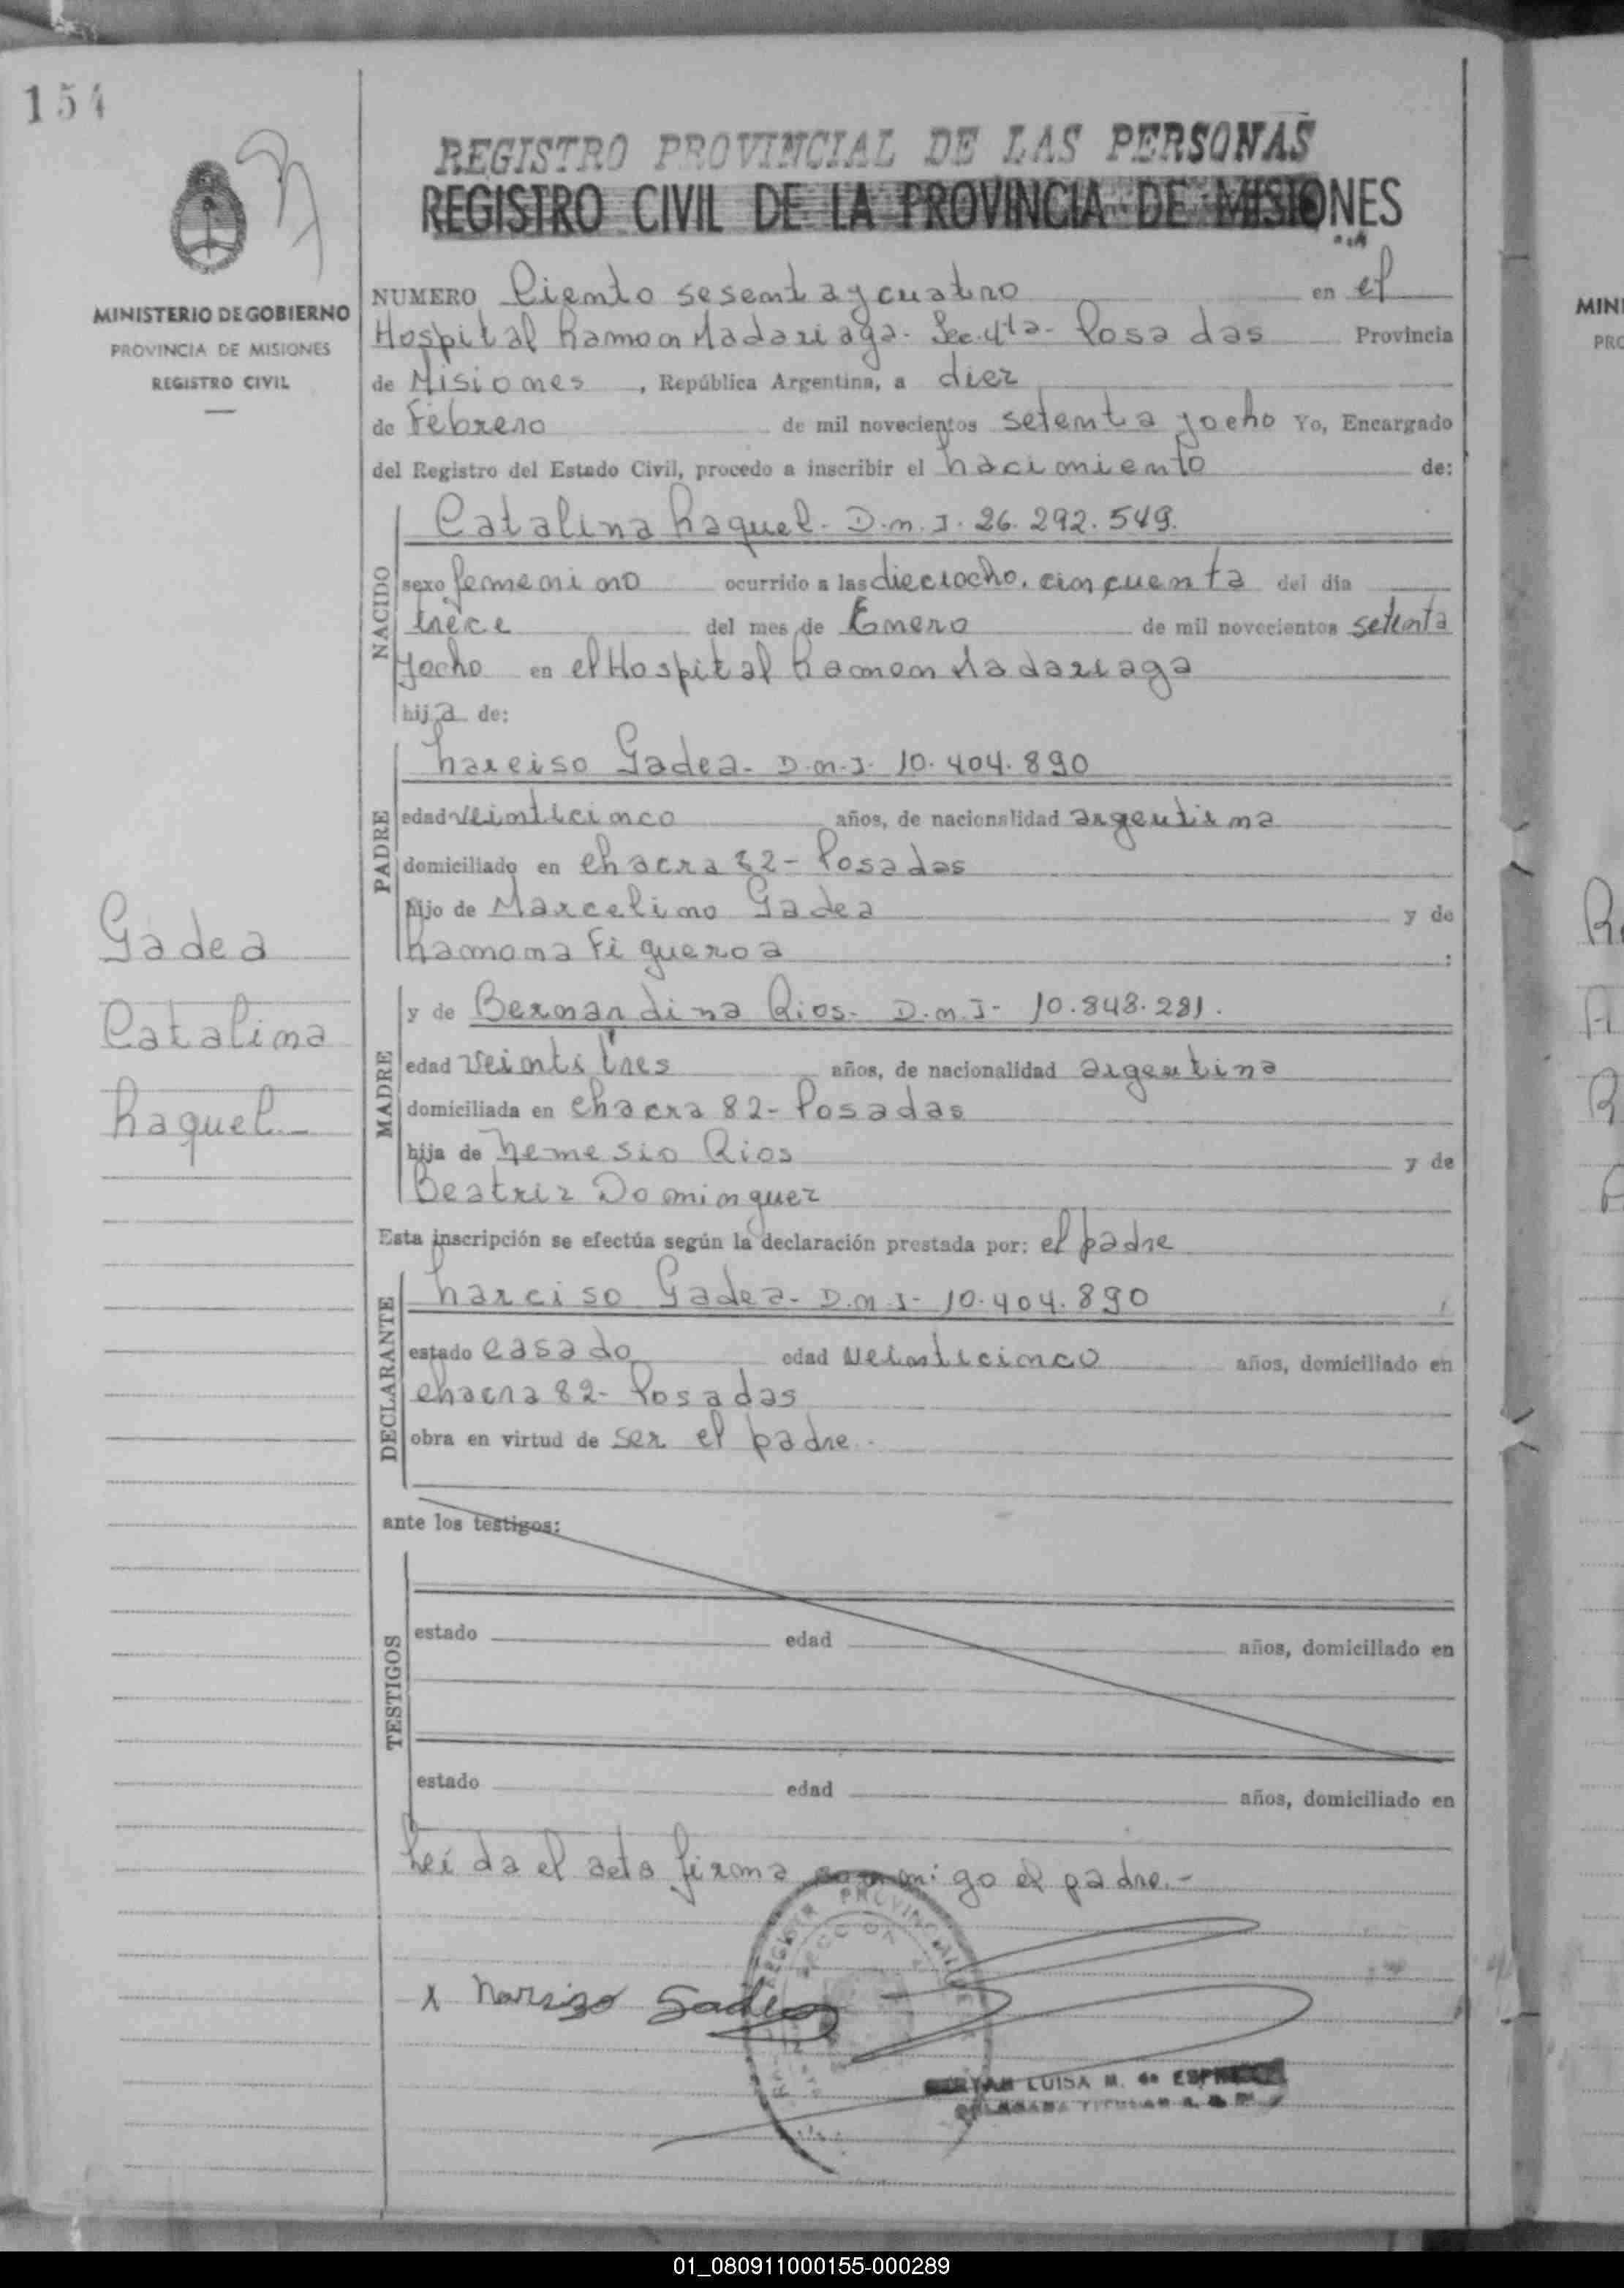 154
REGISTRO PROVINCIAL DE LAS PERSONAS
REGISTRO CIVIL DE LA PROVINCIA DE MISIONES
MINISTERIO DE GOBIERNO
PROVINCIA DE MISIONES
REGISTRO CIVIL
NUMERO Ciento sesenta y cuatro en el
Hospital Ramon Madariaga - Sec. 4ta - Posadas Provincia
de Misiones, República Argentina, a diez
de Febrero de mil novecientos setenta y ocho Yo, Encargado
del Registro del Estado Civil, procedo a inscribir el nacimiento de:
NACIDO
Catalina Raquel - D.n.I. 26.292.549.
sexo femenino ocurrido a las dieciocho. cincuenta del día
trece del mes de Enero de mil novecientos setenta
y ocho en el Hospital Ramon Madariaga
hija de:
PADRE
Narciso Gadea - D.n.I. 10.404.890
edad veinticinco años, de nacionalidad argentina
domiciliado en chacra 82 - Posadas
hijo de Marcelino Gadea y de
Ramona Figueroa :
Gadea
Catalina
Raquel -
MADRE
y de Bernardina Rios - D.n.I - 10.848.281.
edad veintitres años, de nacionalidad argentina
domiciliada en chacra 82 - Posadas
hija de Nemesio Rios y de
Beatriz Dominguez
Esta inscripción se efectúa según la declaración prestada por: el padre
DECLARANTE
Narciso Gadea - D.n.I - 10.404.890
estado casado edad veinticinco años, domiciliado en
chacra 82 - Posadas
obra en virtud de ser el padre. -
ante los testigos:
TESTIGOS
estado edad años, domiciliado en
estado edad años, domiciliado en
Leída el acta firma conmigo el padre. -
x Narsizo Gadea
LUISA M. de
TITULAR
MINI
PRO
01_080911000155-000289